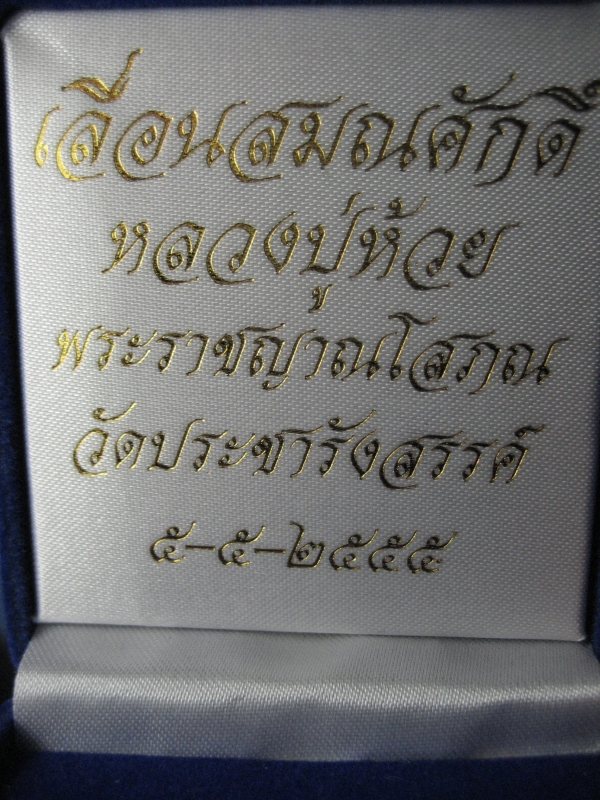 เลื่อนสมณศักดิ์
หลวงปู่ห้วย
พระราชญาณโสภณ
วัดประชารังสรรค์
๕-๕-๒๕๕๕